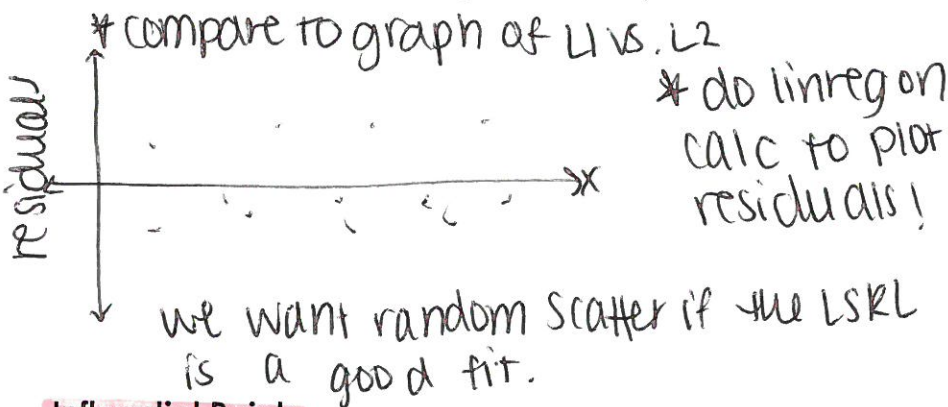 * compare to graph of L1 vs. L2
* do linreg on
calc to plot
residuals!
residual
x
we want random scatter if the LSRL
is a good fit.